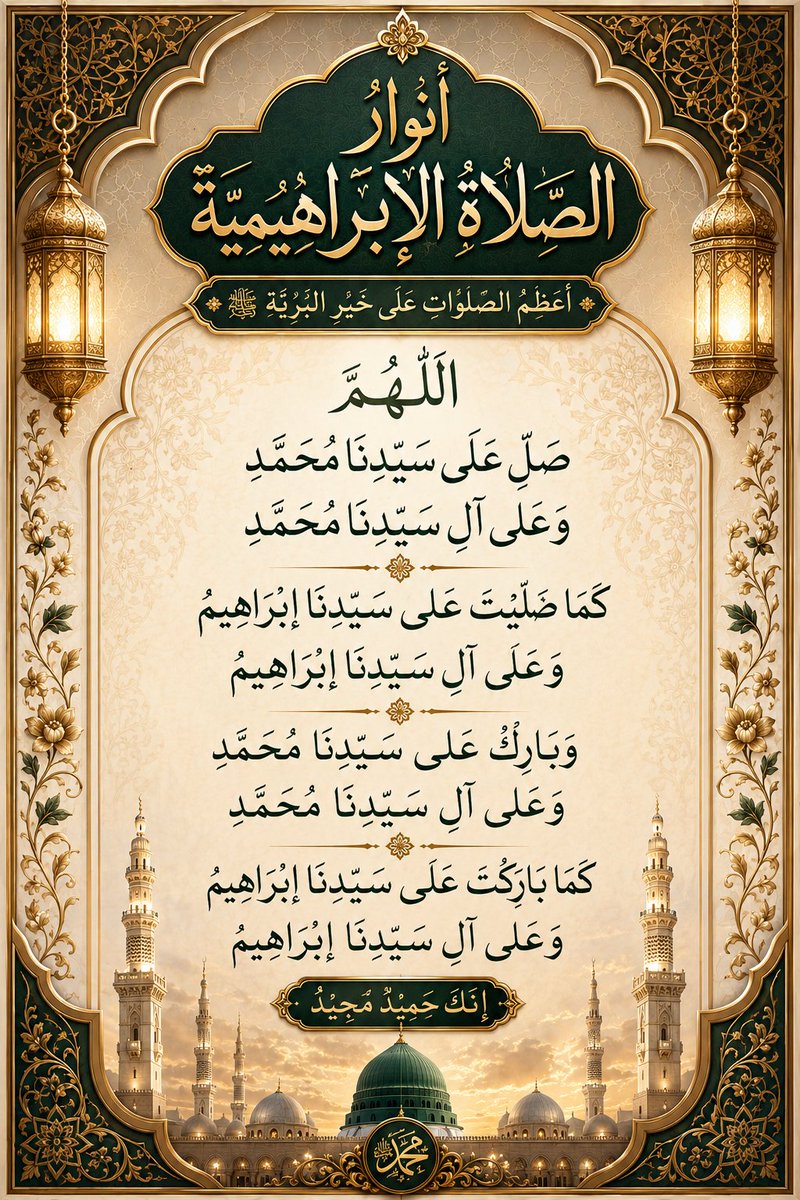 أَنْوَارُ
الصَّلَاةُ الْإِبْرَاهِيْمِيَّةَ
أَعْظَمُ الصَّلَوَاتِ عَلَى خَيْرِ الْبَرِيَّةِ ﷺ
اللَّهُمَّ
صَلِّ عَلَى سَيِّدِنَا مُحَمَّدِ
وَعَلى آلِ سَيِّدِنَا مُحَمَّدِ
كَمَا ضَلَّيْتَ عَلى سَيِّدِنَا إِبْرَاهِيمُ
وَعَلَى آلِ سَيِّدِنَا إِبْرَاهِيمُ
وَبَارِكْ عَلى سَيِّدِنَا مُحَمَّدِ
وَعَلى آلِ سَيِّدِنَا مُحَمَّدِ
كَمَا بَارَكْتَ عَلَى سَيِّدِنَا إِبْرَاهِيمُ
وَعَلى آلِ سَيِّدِنَا إِبْرَاهِيمُ
إِنَكَ حَمِيْدٌ مَّجِيْدٌ
محمد ﷺ